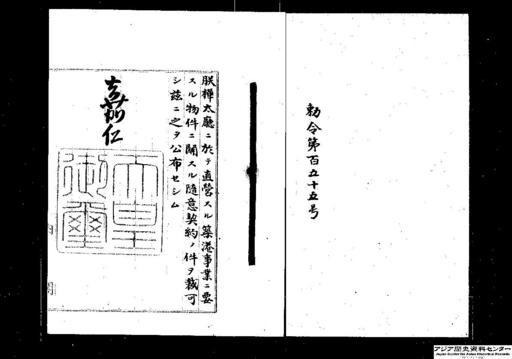 勅令第百五十五号
朕樺太廳ニ於テ直營スル築港事業ニ要
スル物件ニ關スル隨意契約ノ件ヲ裁可
シ茲ニ之ヲ公布セシム
嘉仁
天皇
御璽
アジア歴史資料センター
Japan Center for Asian Historical Records